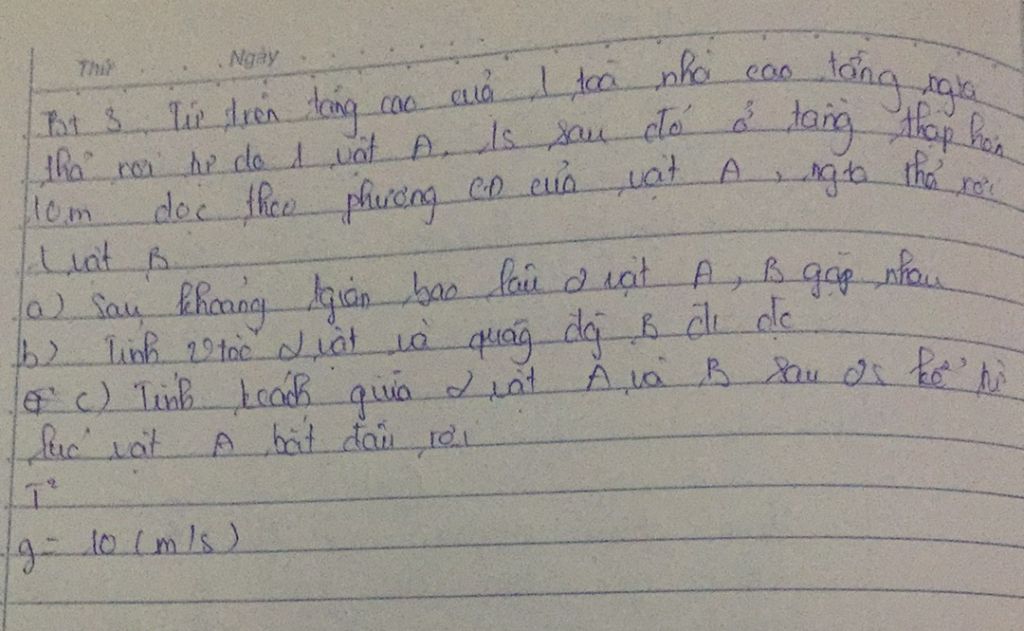 Thứ Ngày
Bt 3. Từ trên tầng cao cuả 1 toà nhà cao tầng ngta
thả rơi tự do 1 vật A. 1s sau đó ở tầng thấp hơn
10m dọc theo phương cđ của vật A, ngta thả rơi
1 vật B
a) Sau khoảng tgian bao lâu 2 vật A, B gặp nhau
b) Tính vtốc 2 vật và quãg đg B đi đc
c) Tính kcách giữa 2 vật A và B sau 2s kể từ
lúc vật A bắt đầu rơi
T²
g = 10 (m/s)